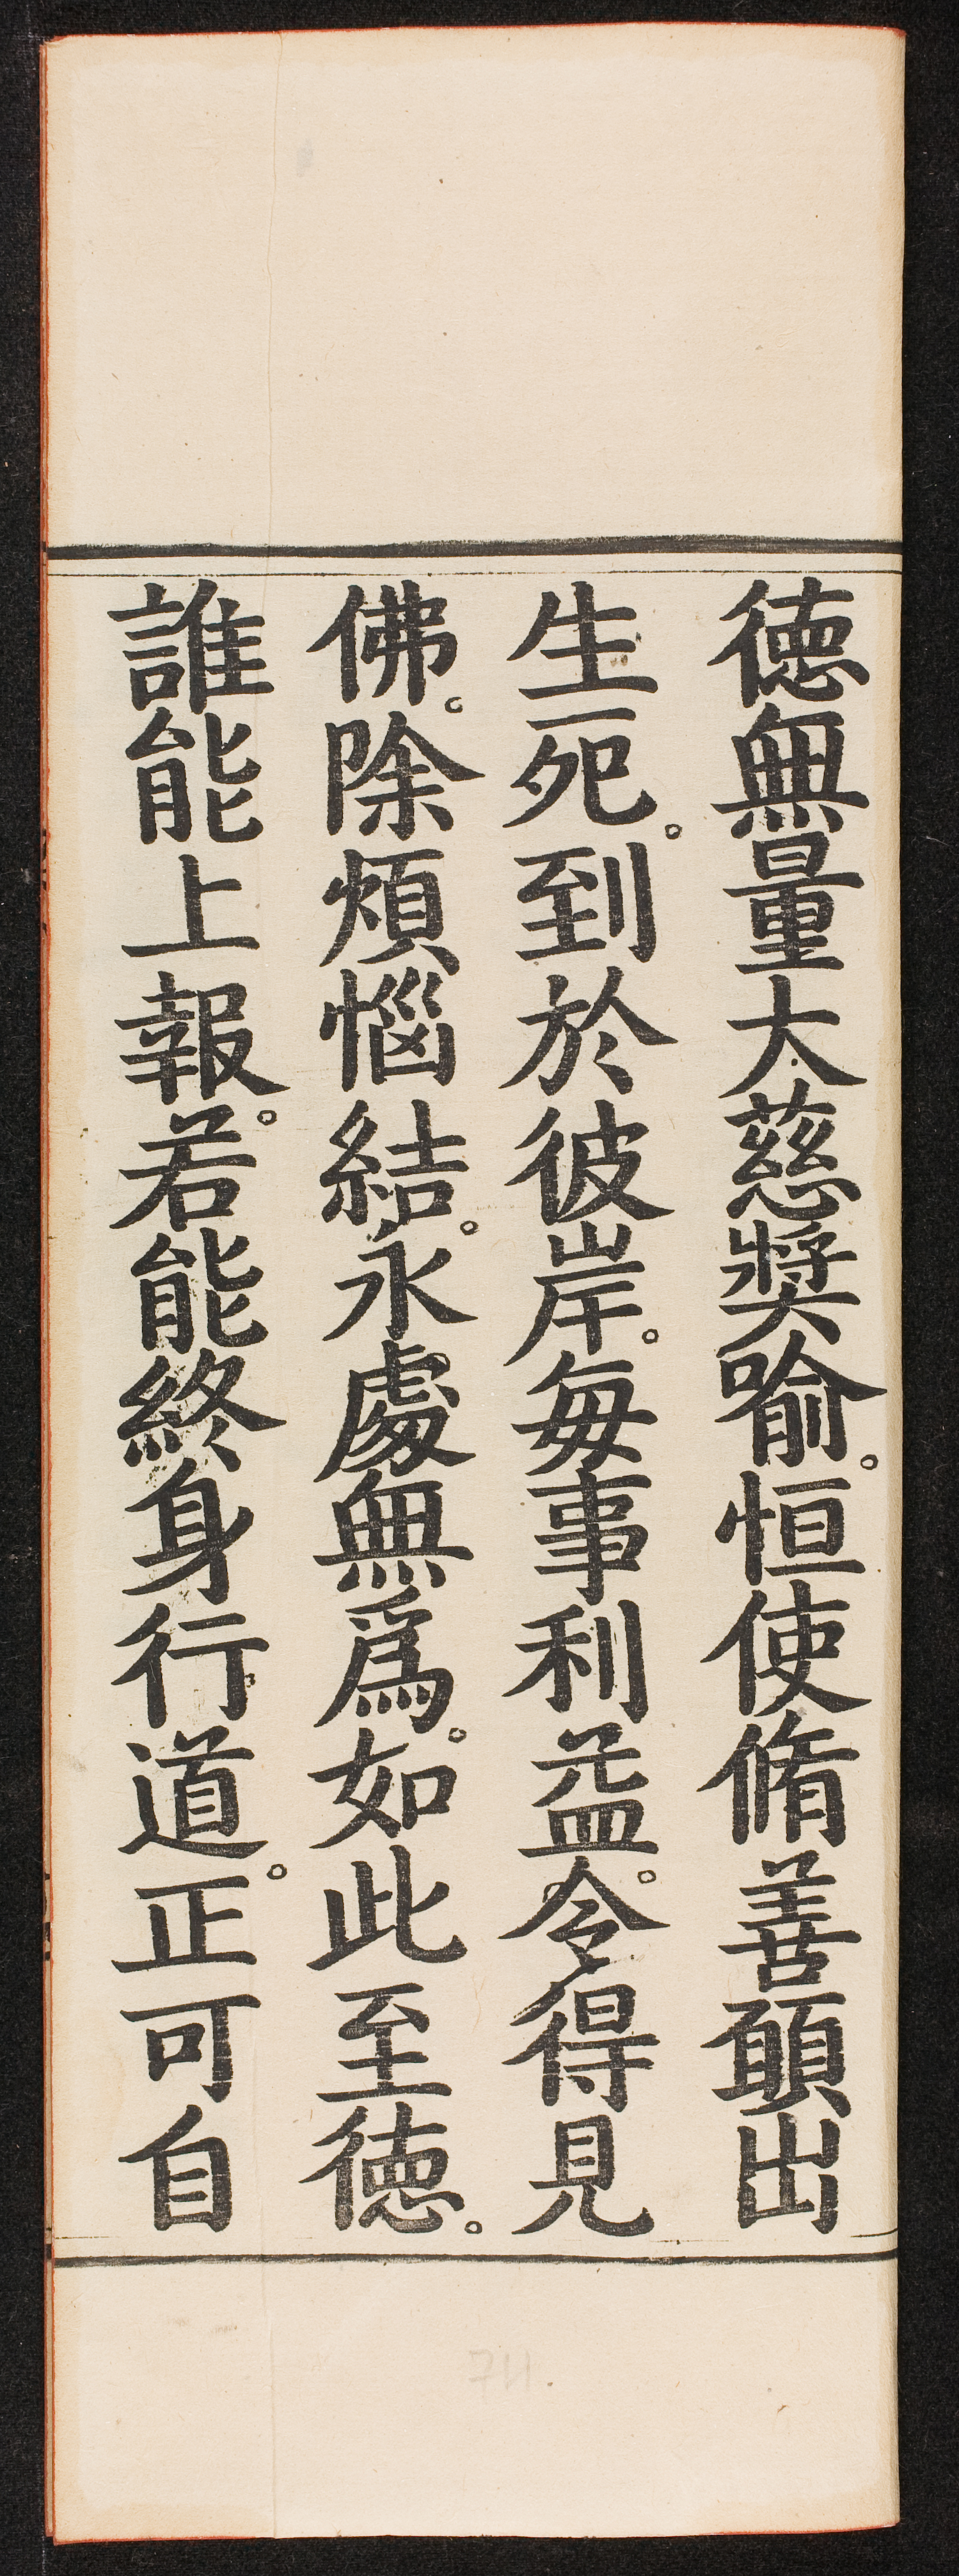 徳無量大慈奬喻。恒使脩善願出
生死。到於彼岸。每事利益。令得見
佛。除煩惱結。永處無爲。如此至徳。
誰能上報。若能終身行道。正可自